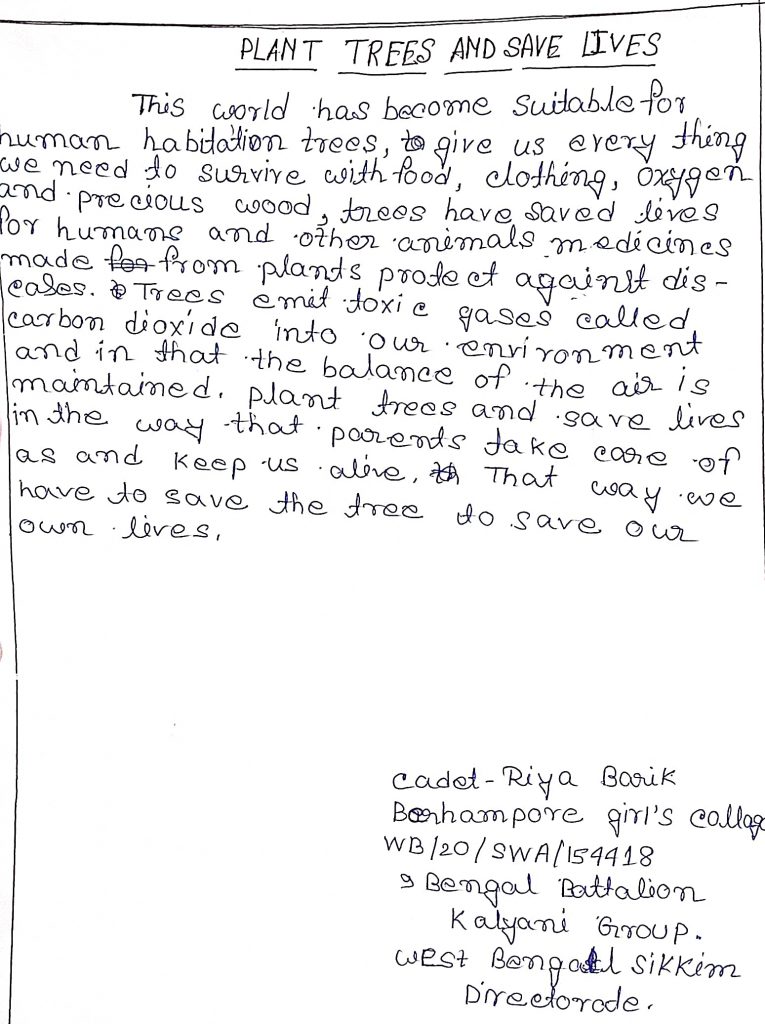 PLANT TREES AND SAVE LIVES
This world has become suitable for
human habitation trees, to give us every thing
we need to survive with food, clothing, oxygen
and precious wood, trees have saved lives
for humans and other animals medicines
made for from plants protect against dis-
eases. Trees emit toxic gases called
carbon dioxide into our environment
and in that the balance of the air is
maintained. plant trees and save lives
in the way that parents take care of
as and keep us alive. That way we
have to save the tree to save our
own lives.
Cadet - Riya Barik
Berhampore girl's collage
WB/20/SWA/154418
9 Bengal Battalion
Kalyani Group.
West Bengal Sikkim
Directorade.